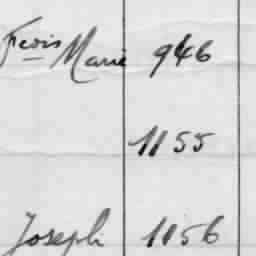 Frcois Marie 946
1155
Joseph 1156